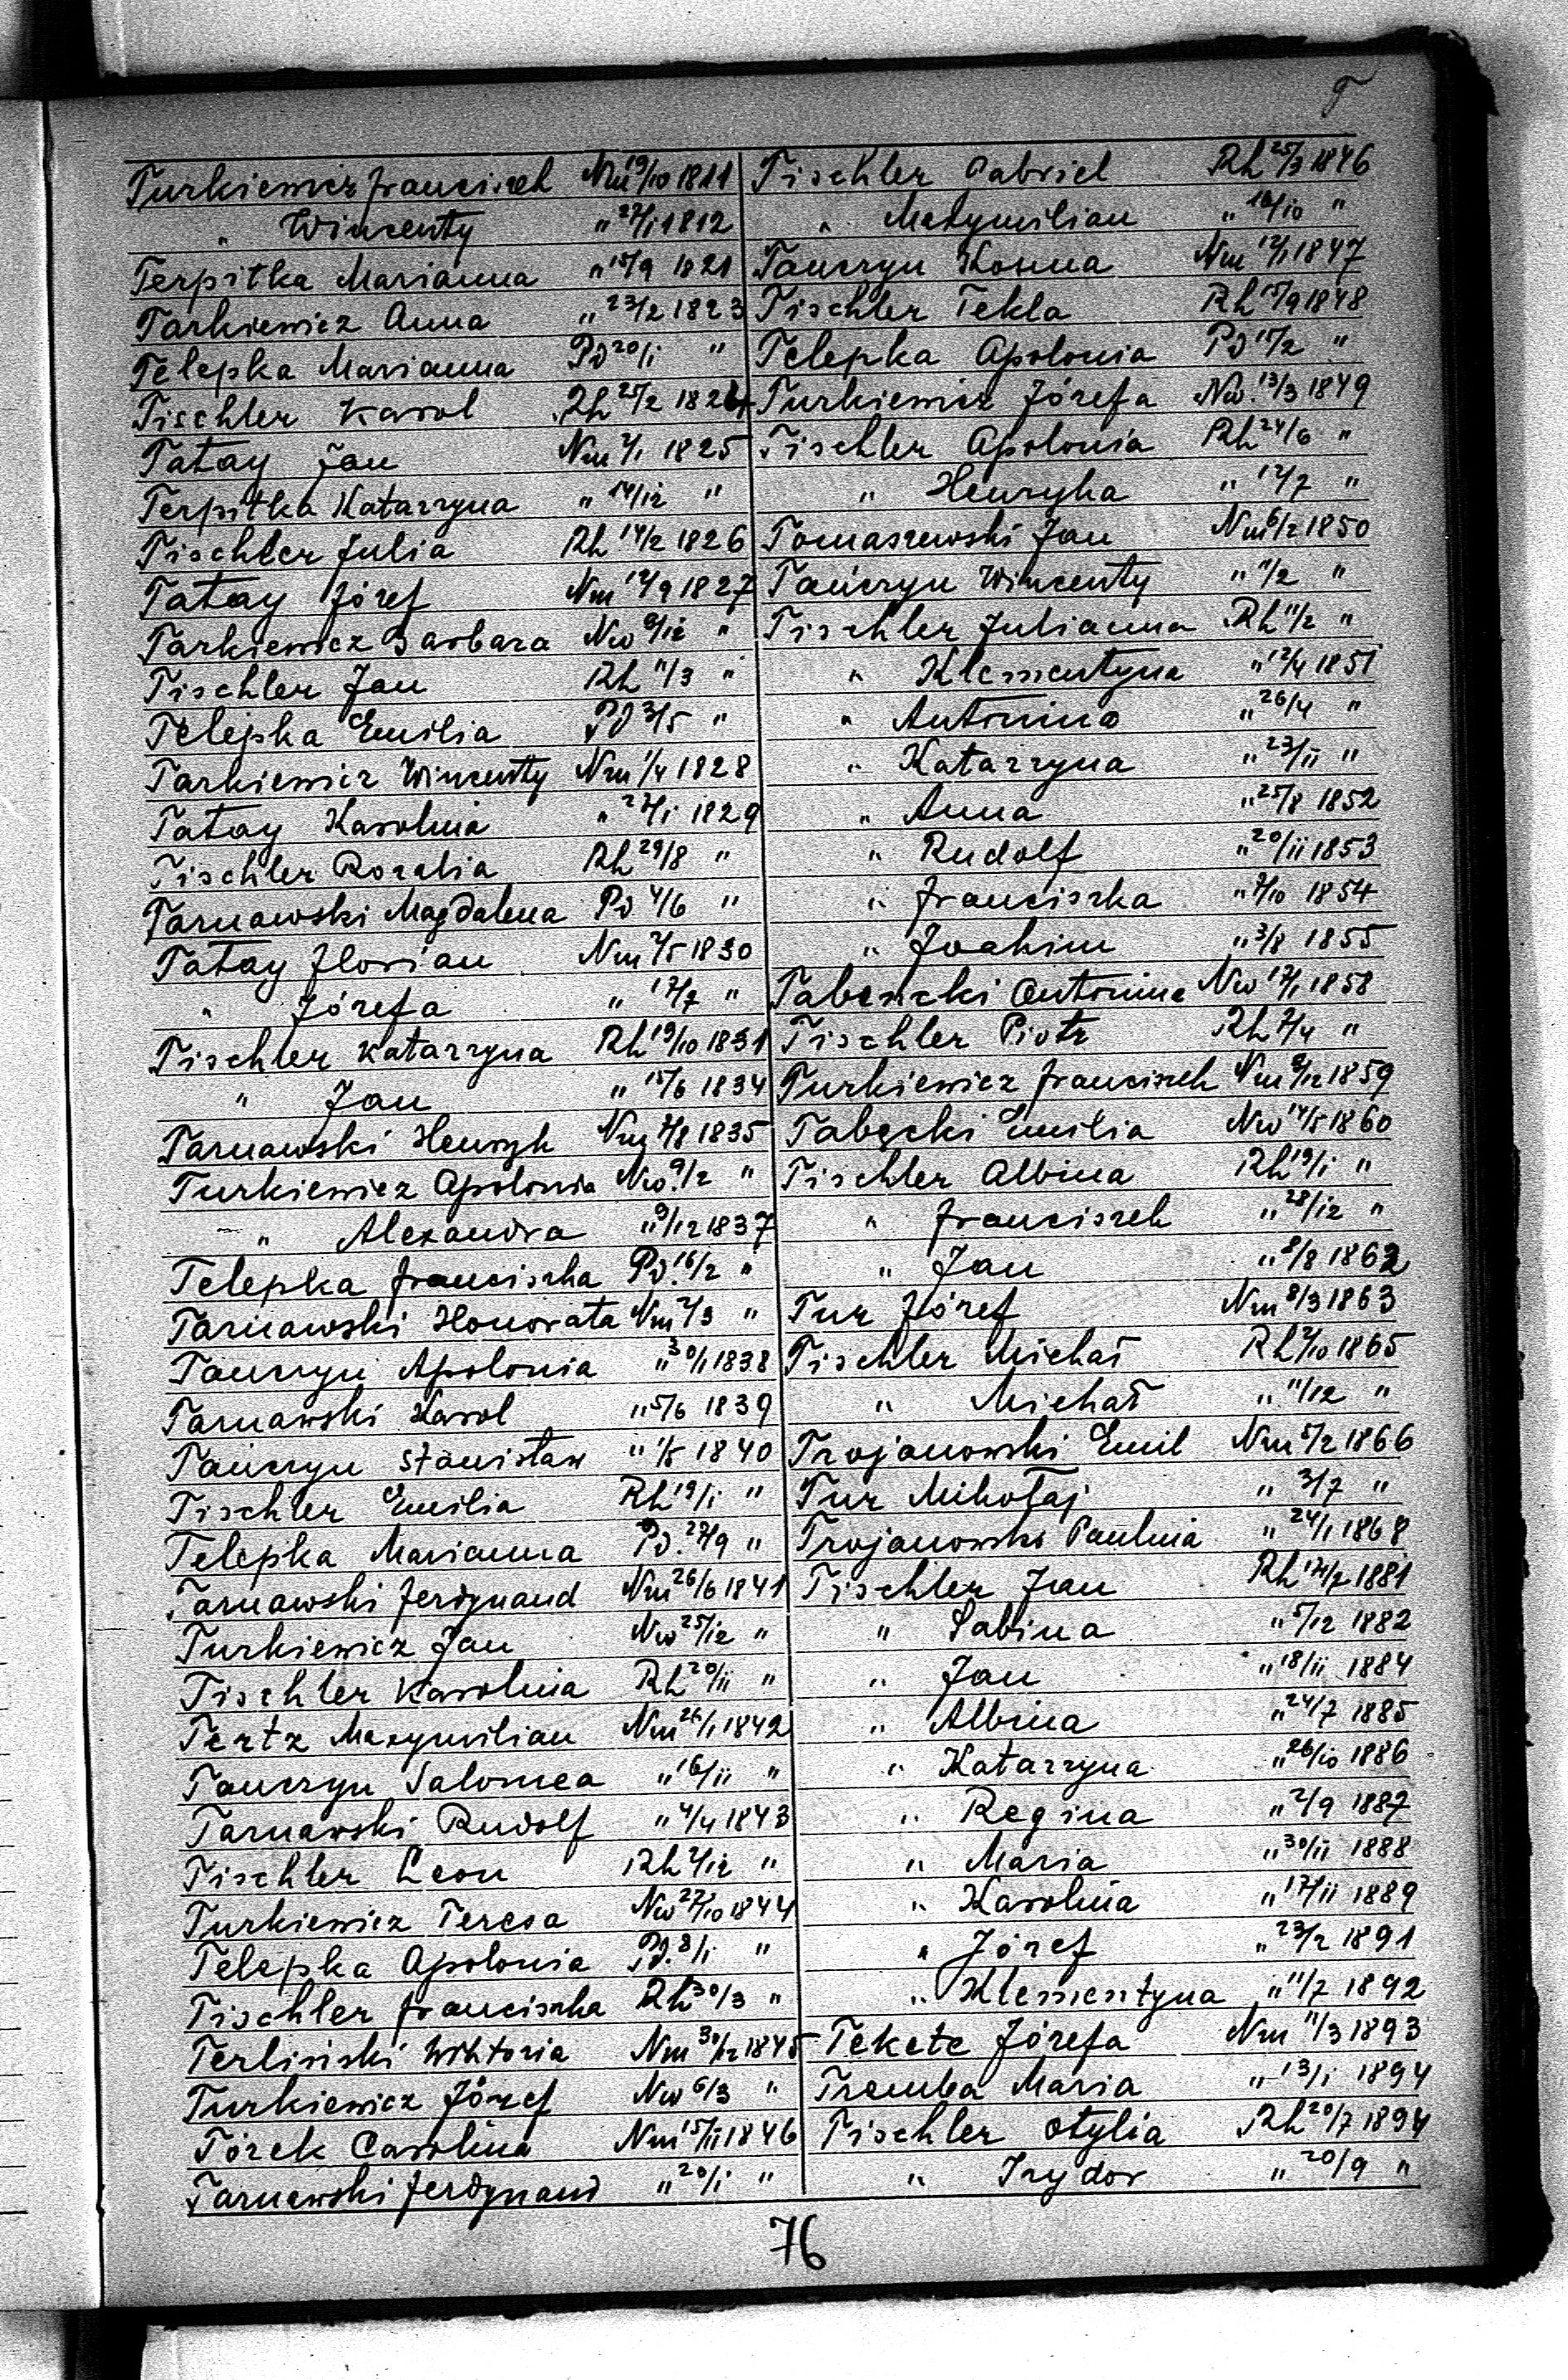 T
Turkiewicz Franciszek Nm 19/10 1811
" Wincenty " 27/1 1812
Terpitka Marianna " 15/9 1821
Tarkiewicz Anna " 23/2 1823
Telepka Marianna Pd 20/1 "
Tischler Karol Rh 25/2 1824
Tatay Jan Nm 2/1 1825
Terpitka Katarzyna " 14/12 "
Tischler Julia Rh 14/2 1826
Tatay Józef Nm 12/9 1827
Tarkiewicz Barbara Nw 9/12 "
Tischler Jan Rh 11/3 "
Telepka Emilia Pd 3/5 "
Tarkiewicz Wincenty Nm 1/4 1828
Tatay Karolina " 27/1 1829
Tischler Rozalia Rh 29/8 "
Tarnawski Magdalena Pd 4/6 "
Tatay Florian Nm 2/5 1830
" Józefa " 17/7 "
Tischler Katarzyna Rh 19/10 1831
" Jan " 15/6 1834
Tarnawski Henryk Nm 7/8 1835
Turkiewicz Apolonia Nw. 9/2 "
" Alexandra " 9/12 1837
Telepka Franciszka Pd. 16/2 "
Tarnawski Honorata Nm 2/3 "
Tanczyn Apolonia " 30/1 1838
Tarnawski Karol " 5/6 1839
Tanczyn Stanisław " 1/5 1840
Tischler Emilia Rh 19/1 "
Telepka Marianna Pd. 27/9 "
Tarnawski Ferdynand Nm 26/6 1841
Turkiewicz Jan Nw 25/12 "
Tischler Karolina Rh 20/11 "
Tertz Maxymilian Nm 26/1 1842
Tanczyn Salomea " 16/11 "
Tarnawski Rudolf " 4/4 1843
Tischler Leon Rh 2/12 "
Turkiewicz Teresa Nw 27/10 1844
Telepka Apolonia Pd. 8/1 "
Tischler Franciszka Rh 30/3 "
Terlinski Wiktoria Nm 30/12 1845
Turkiewicz Józef Nw 6/3 "
Törek Carolina Nm 15/11 1846
Tarnawski Ferdynand " 20/1 "
Tischler Gabriel Rh 25/3 1846
" Maxymilian " 16/10 "
Tanczyn Joanna Nm 12/1 1847
Tischler Tekla Rh 15/9 1848
Telepka Apolonia Pd 15/2 "
Turkiewicz Józefa Nw. 13/3 1849
Tischler Apolonia Rh 24/6 "
" Henryka " 12/7 "
Tomaszewski Jan Nm 6/12 1850
Tanczyn Wincenty " 11/2 "
Tischler Julianna Rh 11/2 "
" Klementyna " 12/4 1851
" Antonina " 26/4 "
" Katarzyna " 23/11 "
" Anna " 25/8 1852
" Rudolf " 20/11 1853
" Franciszka " 7/10 1854
" Joahim " 3/8 1855
Tabęncki Antonina Nw 17/1 1858
Tischler Piotr Rh 7/4 "
Turkiewicz Franciszek Nm 8/12 1859
Tabęcki Emilia Nw 14/5 1860
Tischler Albina Rh 19/1 "
" Franciszek " 28/12 "
" Jan " 8/8 1862
Tur Józef Nm 8/3 1863
Tischler Michał Rh 2/10 1865
" Michał " 11/12 "
Trojanowski Emil Nm 5/2 1866
Tur Mikołaj " 3/7 "
Trojanowski Paulina " 24/1 1868
Tischler Jan Rh 14/7 1881
" Sabina " 5/12 1882
" Jan " 18/11 1884
" Albina " 24/7 1885
" Katarzyna " 26/10 1886
" Regina " 2/9 1887
" Maria " 30/11 1888
" Karolina " 17/11 1889
" Józef " 23/2 1891
" Klementyna " 11/7 1892
Tekete Józefa Nm 11/3 1893
Tremba Maria " 13/1 1894
Tischler Otylia Rh 20/7 1894
" Izydor " 20/9 "
76